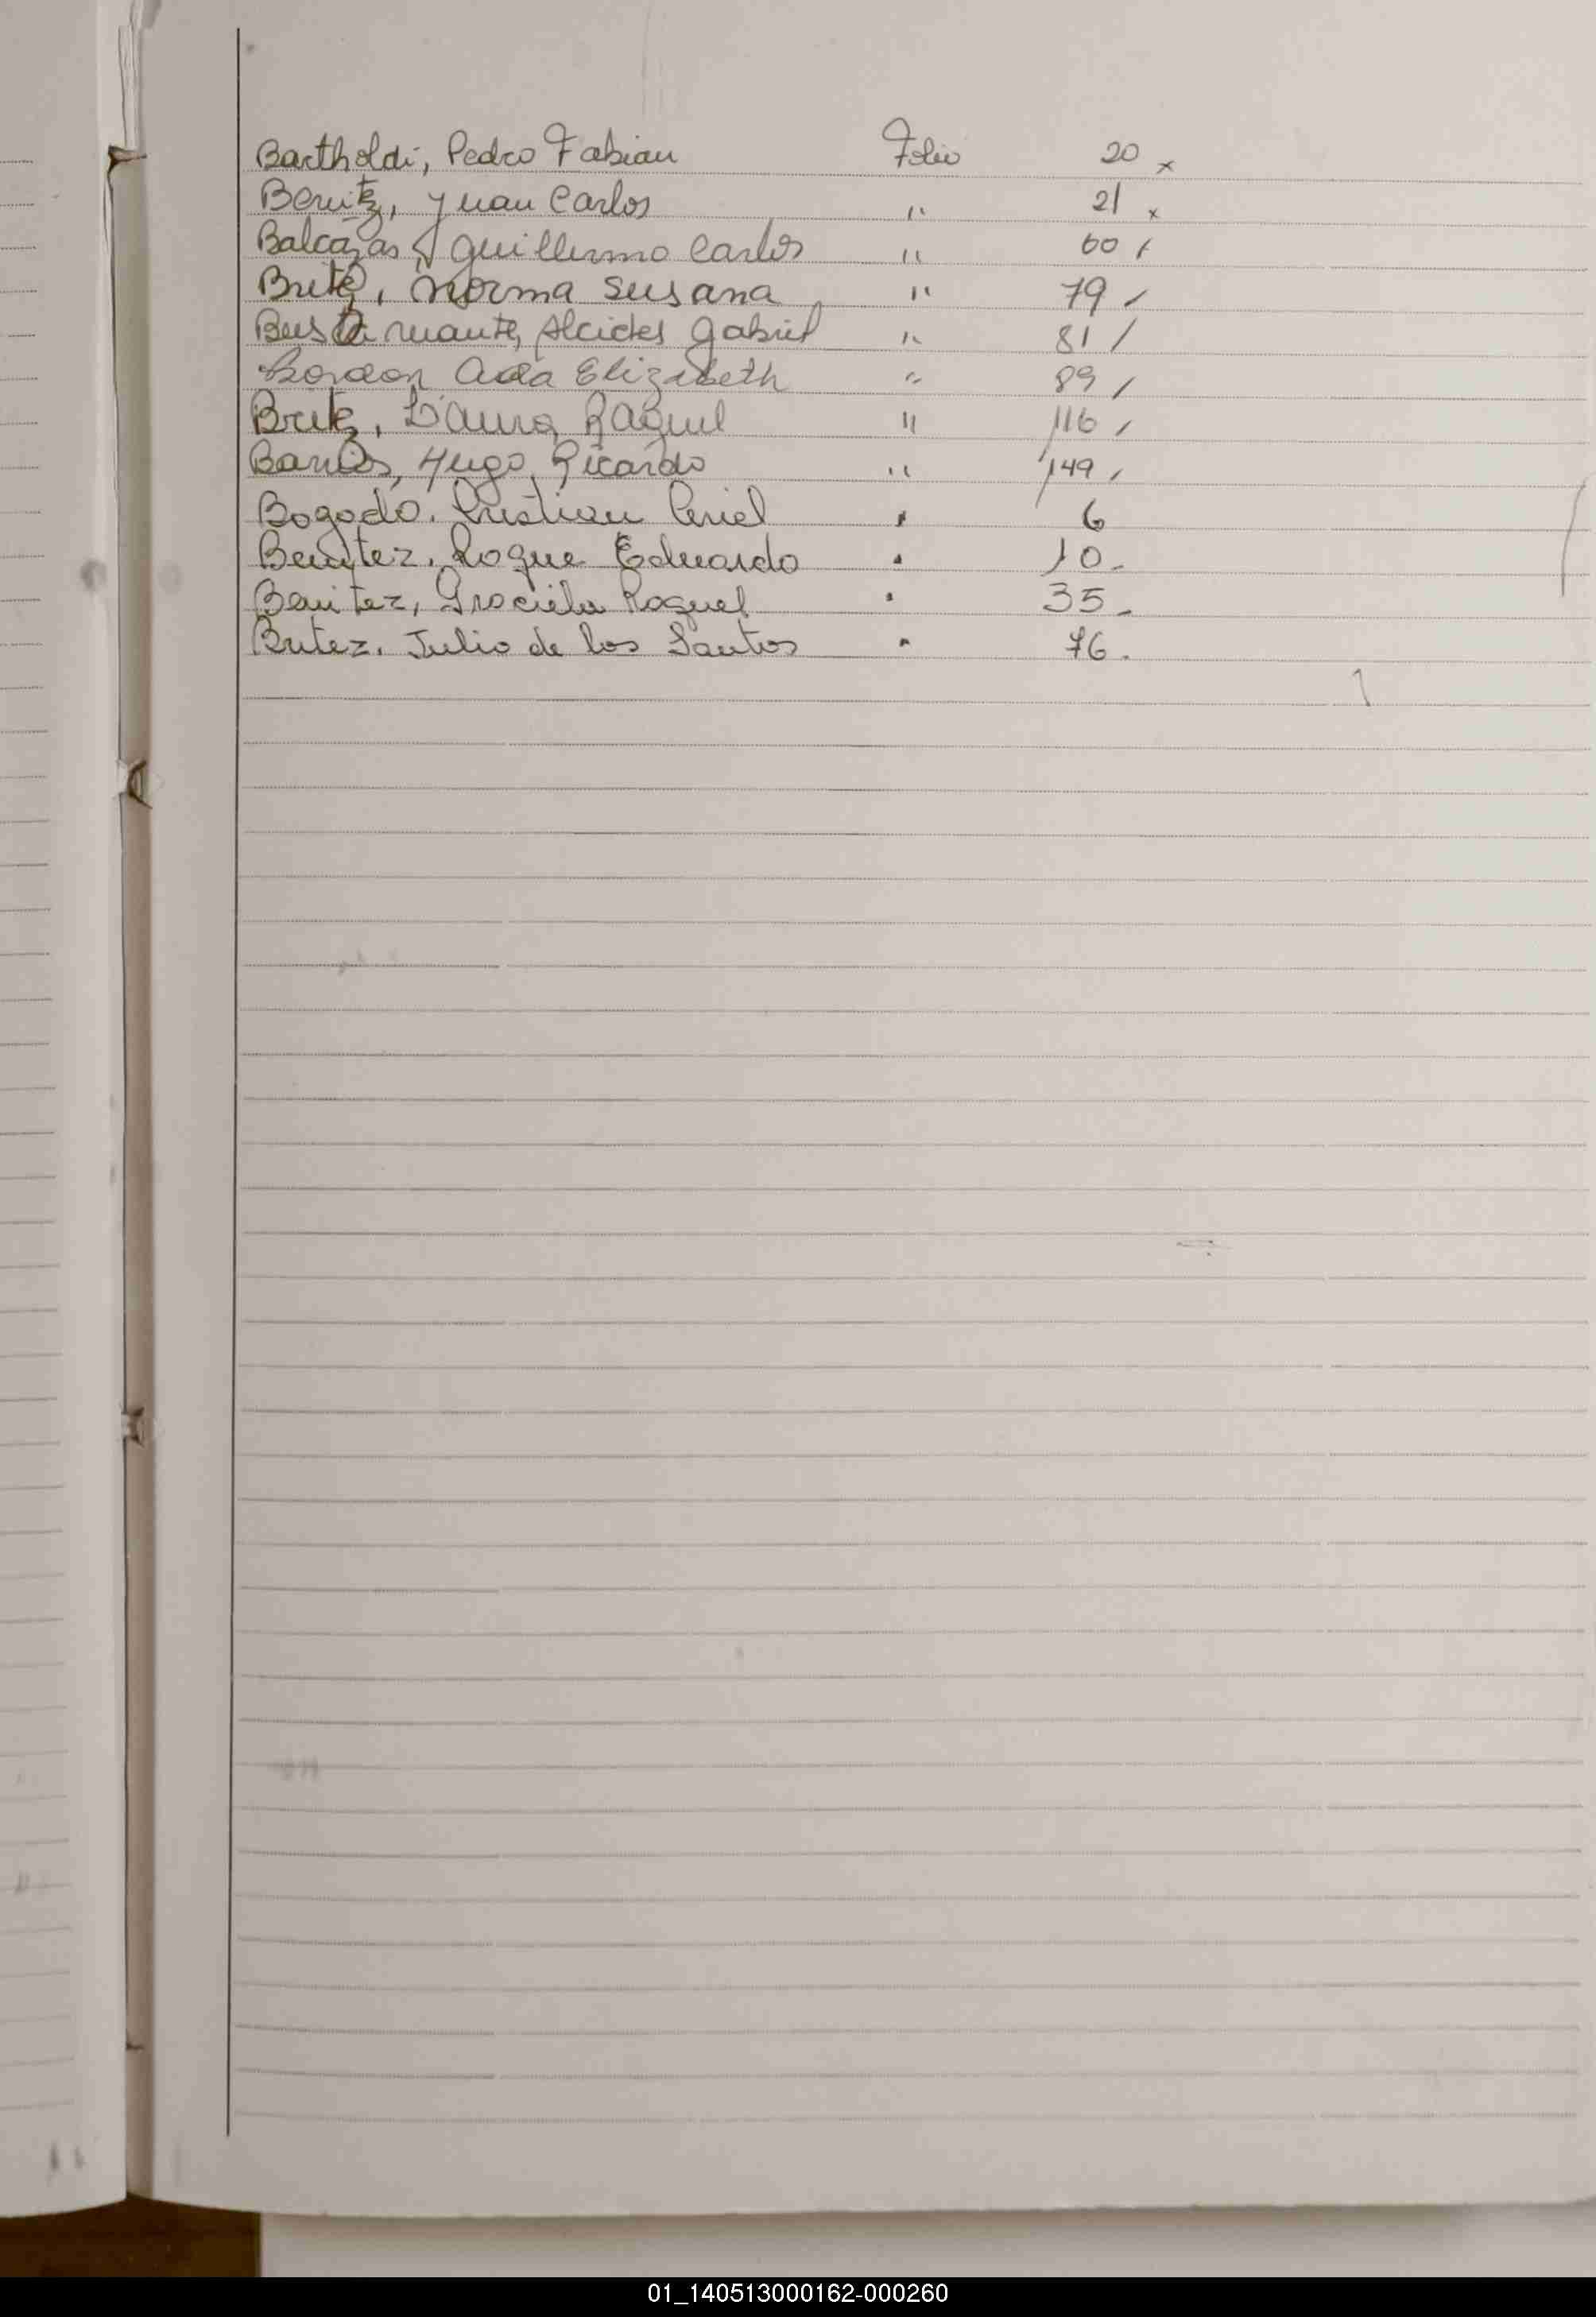 Bartholdi, Pedro Fabian Folio 20 x
Benitz, Juan Carlos " 21 x
Balcazas, Guillermo Carlos " 60 /
Britz, Norma Susana " 79 /
Bustamante, Alcides Gabriel " 81 /
Bordon Aida Elizabeth " 89 /
Britz, Laura Raquel " 116 /
Barrios, Hugo Ricardo " 149 /
Bogado, Cristian " 6
Benitez, Roque Eduardo " 10.
Benitez, Graciela Raquel " 35.
Britez, Julio de los Santos " 76.
01_140513000162-000260